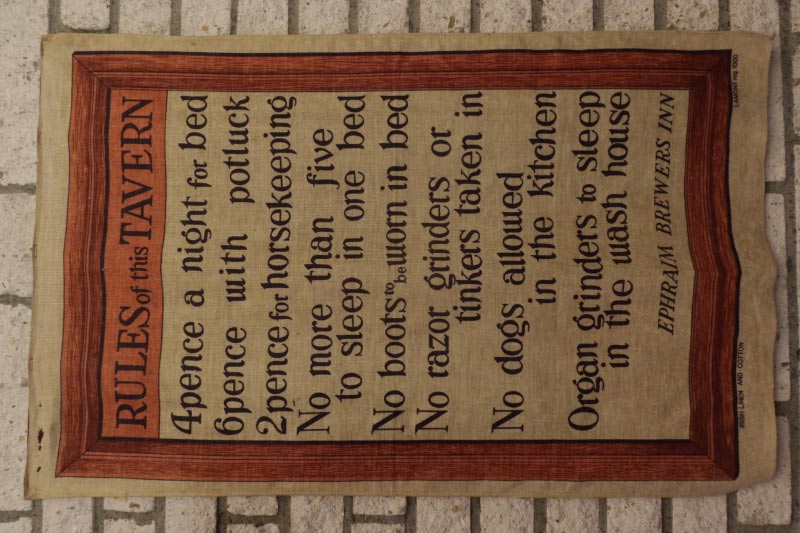 RULES of this TAVERN
4pence a night for bed
6pence with potluck
2pence for horsekeeping
No more than five
to sleep in one bed
No boots to be worn in bed
No razor grinders or
tinkers taken in
No dogs allowed
in the kitchen
Organ grinders to sleep
in the wash house
EPHRAIM BREWERS INN
IRISH LINEN AND COTTON
LAMONT